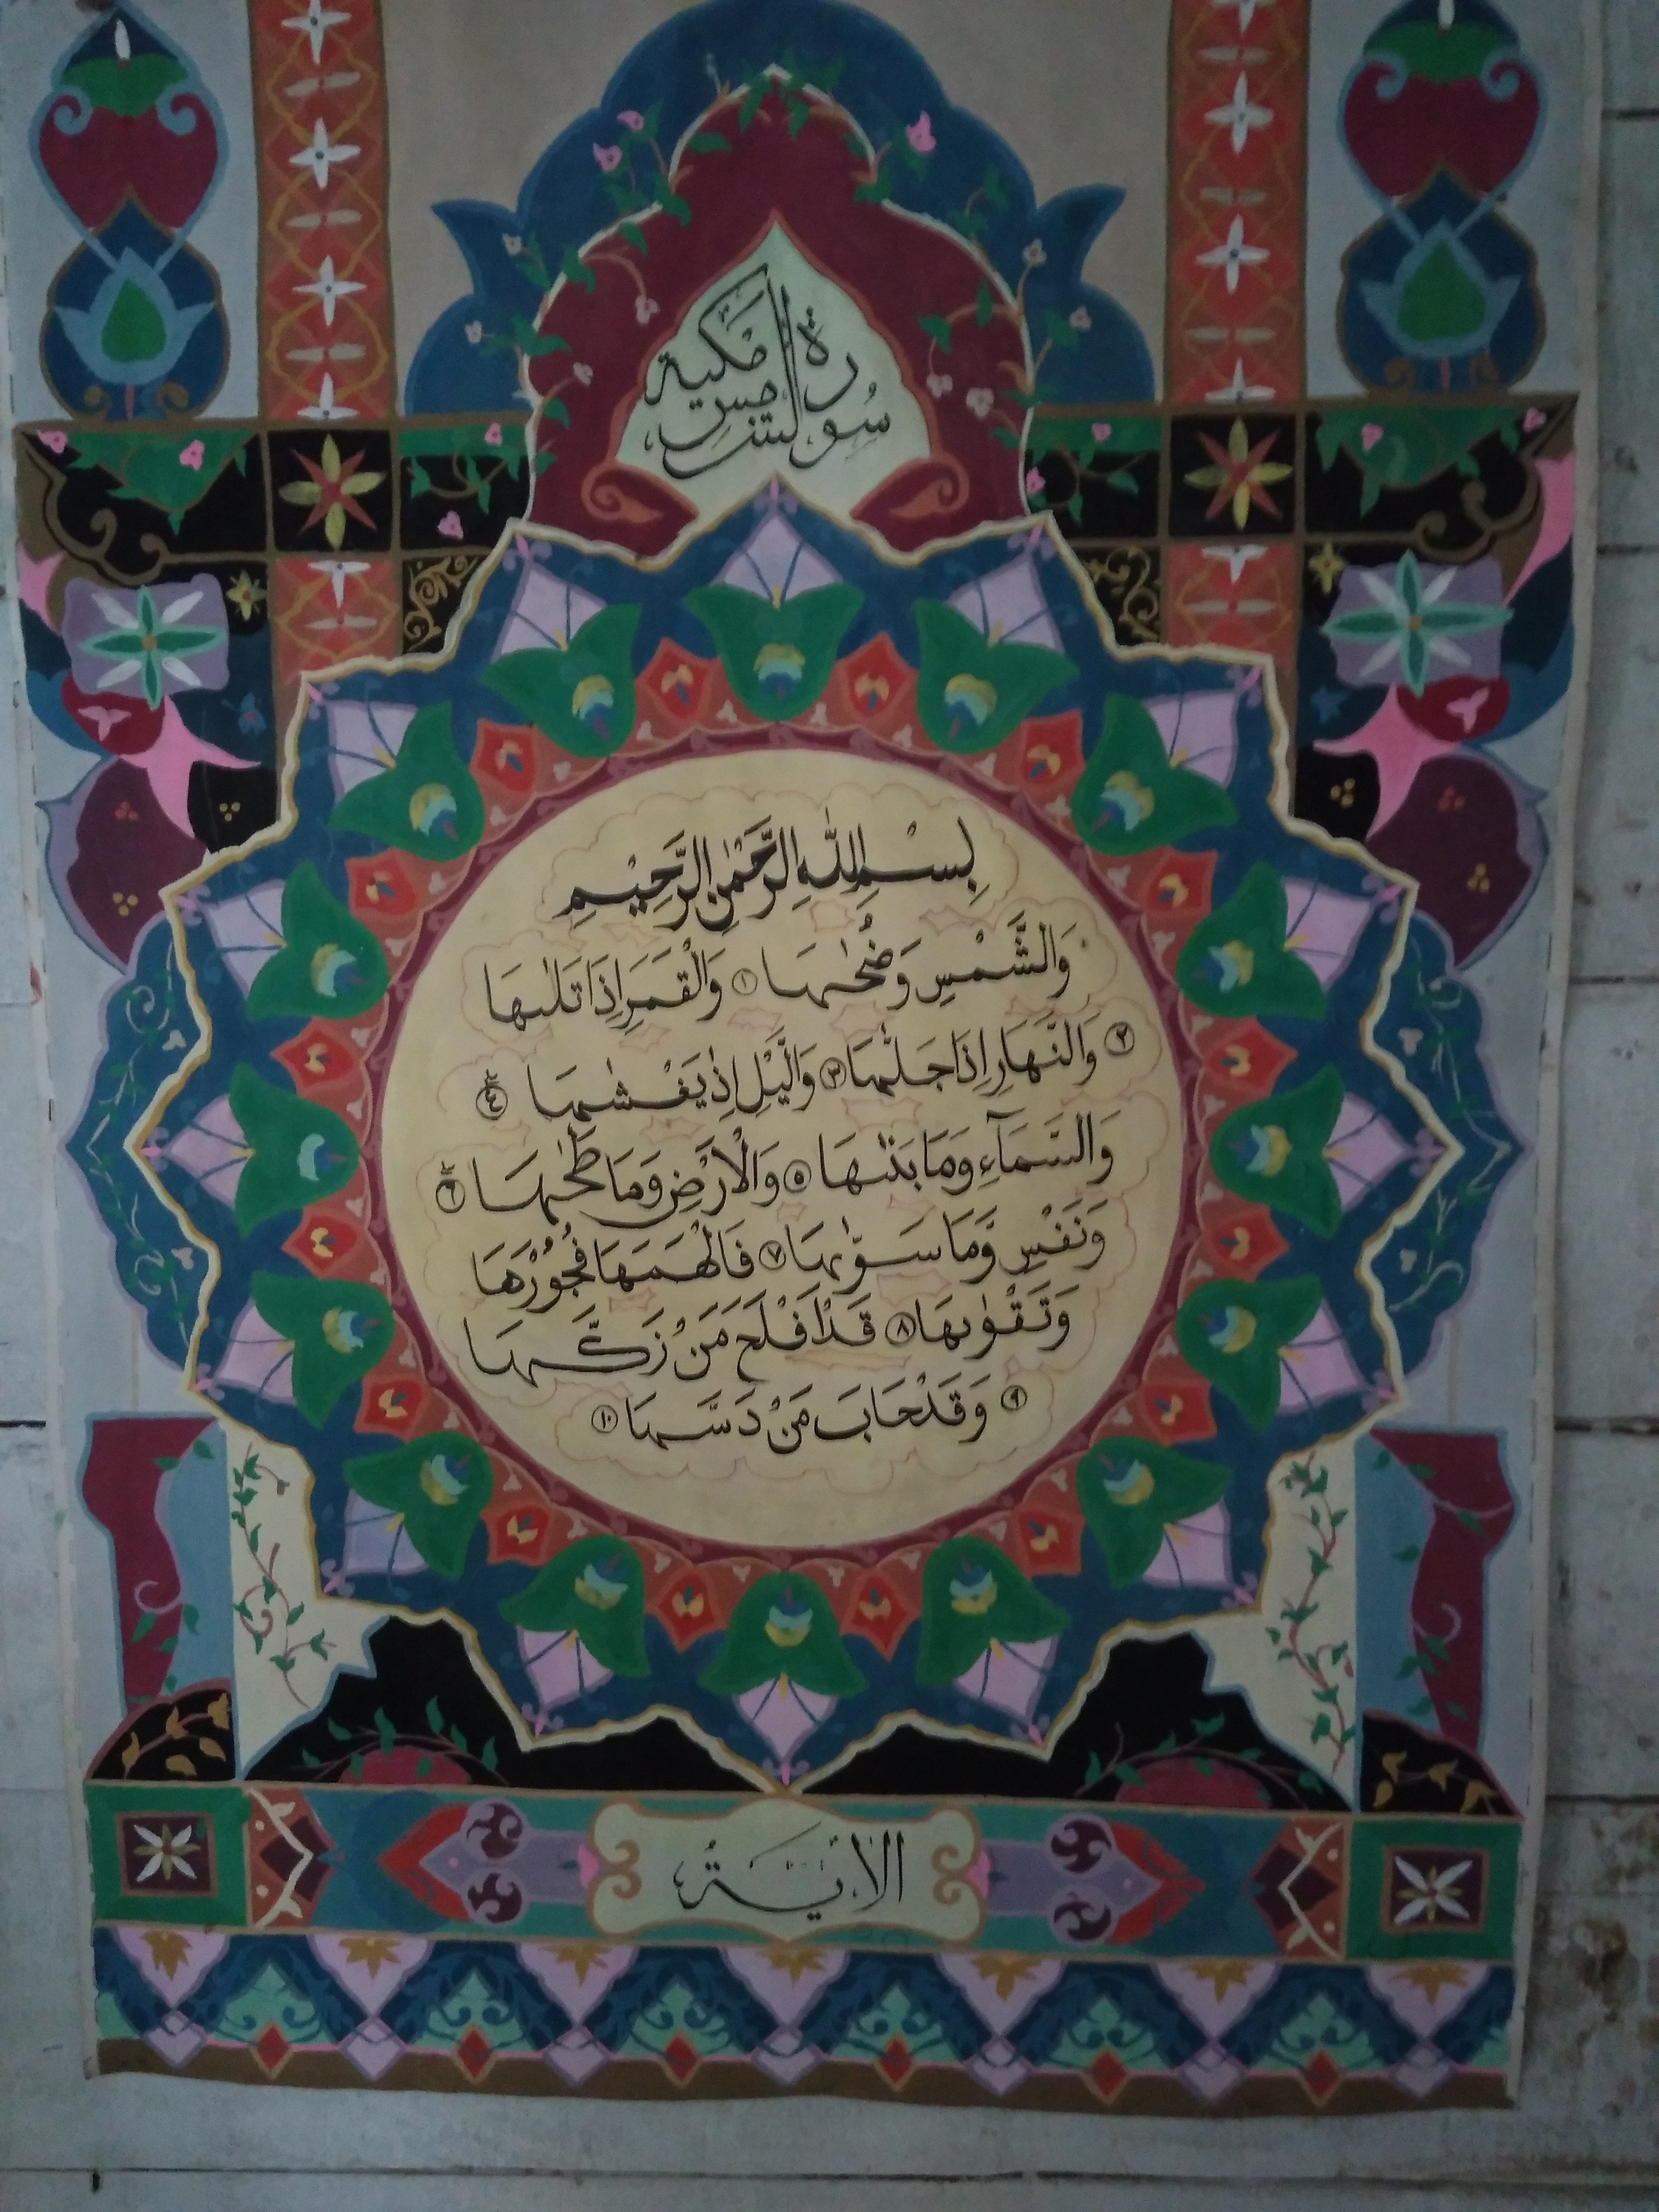 سورة الشمس مكية
بِسْمِ اللّٰهِ الرَّحْمٰنِ الرَّحِيْمِ
وَالشَّمْسِ وَضُحٰىهَا ١ وَالْقَمَرِ اِذَا تَلٰىهَا
٢ وَالنَّهَارِ اِذَا جَلّٰىهَا ٣ وَالَّيْلِ اِذَا يَغْشٰىهَا ٤
وَالسَّمَآءِ وَمَا بَنٰىهَا ٥ وَالْاَرْضِ وَمَا طَحٰىهَا ٦
وَنَفْسٍ وَّمَا سَوّٰىهَا ٧ فَاَلْهَمَهَا فُجُوْرَهَا
وَتَقْوٰىهَا ٨ قَدْ اَفْلَحَ مَنْ زَكّٰىهَا
٩ وَقَدْ خَابَ مَنْ دَسّٰىهَا ١٠
الاية